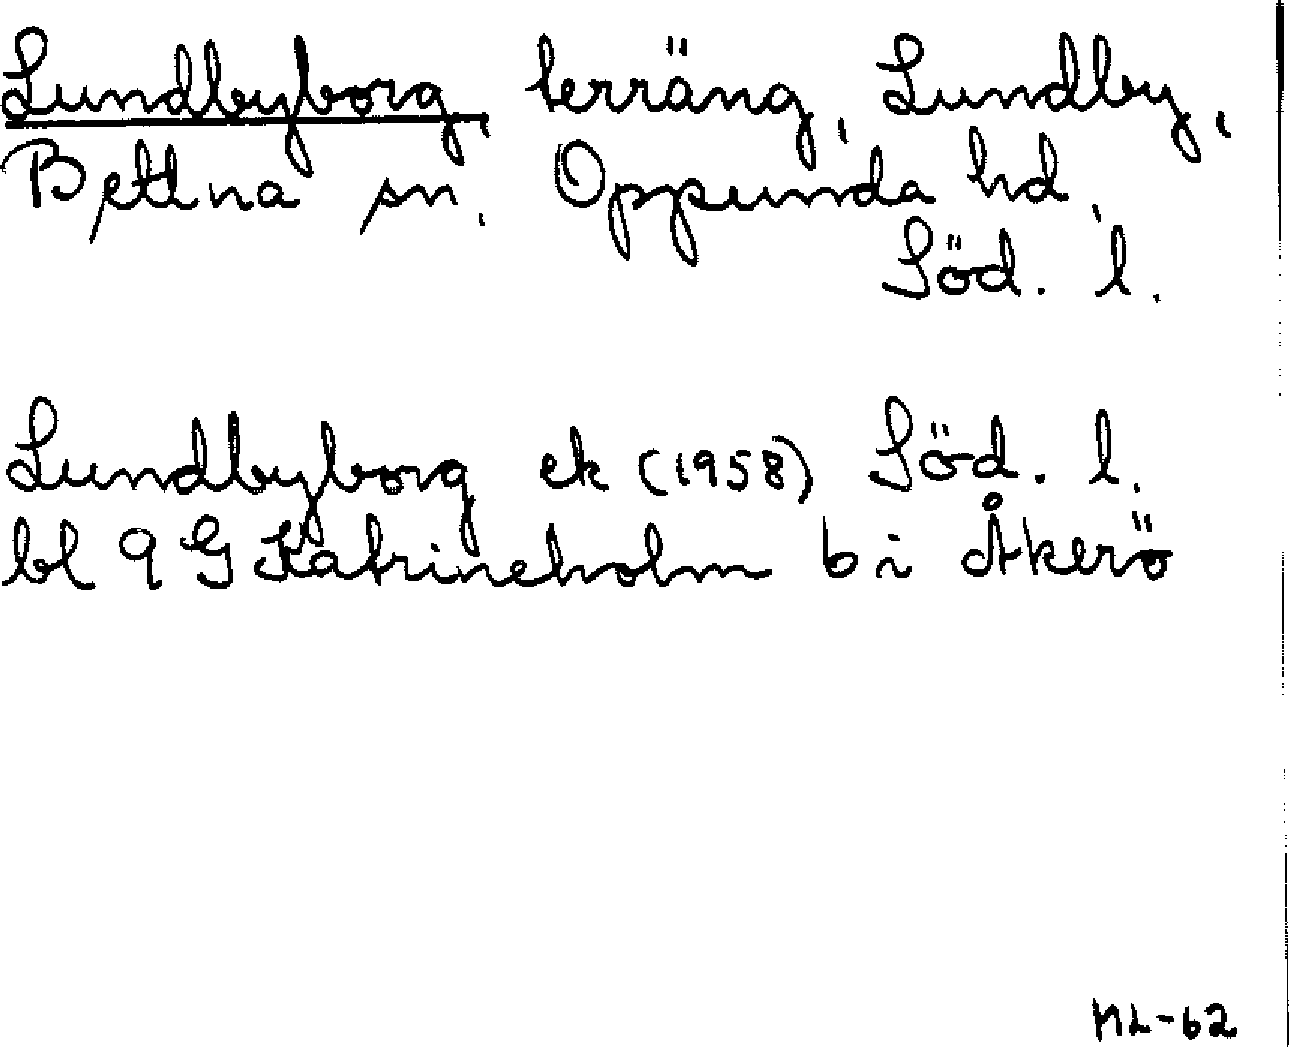 Lundbyborg, terräng, Lundby,
Bettna sn, Oppunda hd,
Söd. l.
Lundbyborg ek (1958) Söd. l.
bl 9 G Katrineholm b i Åkerö
ML-62